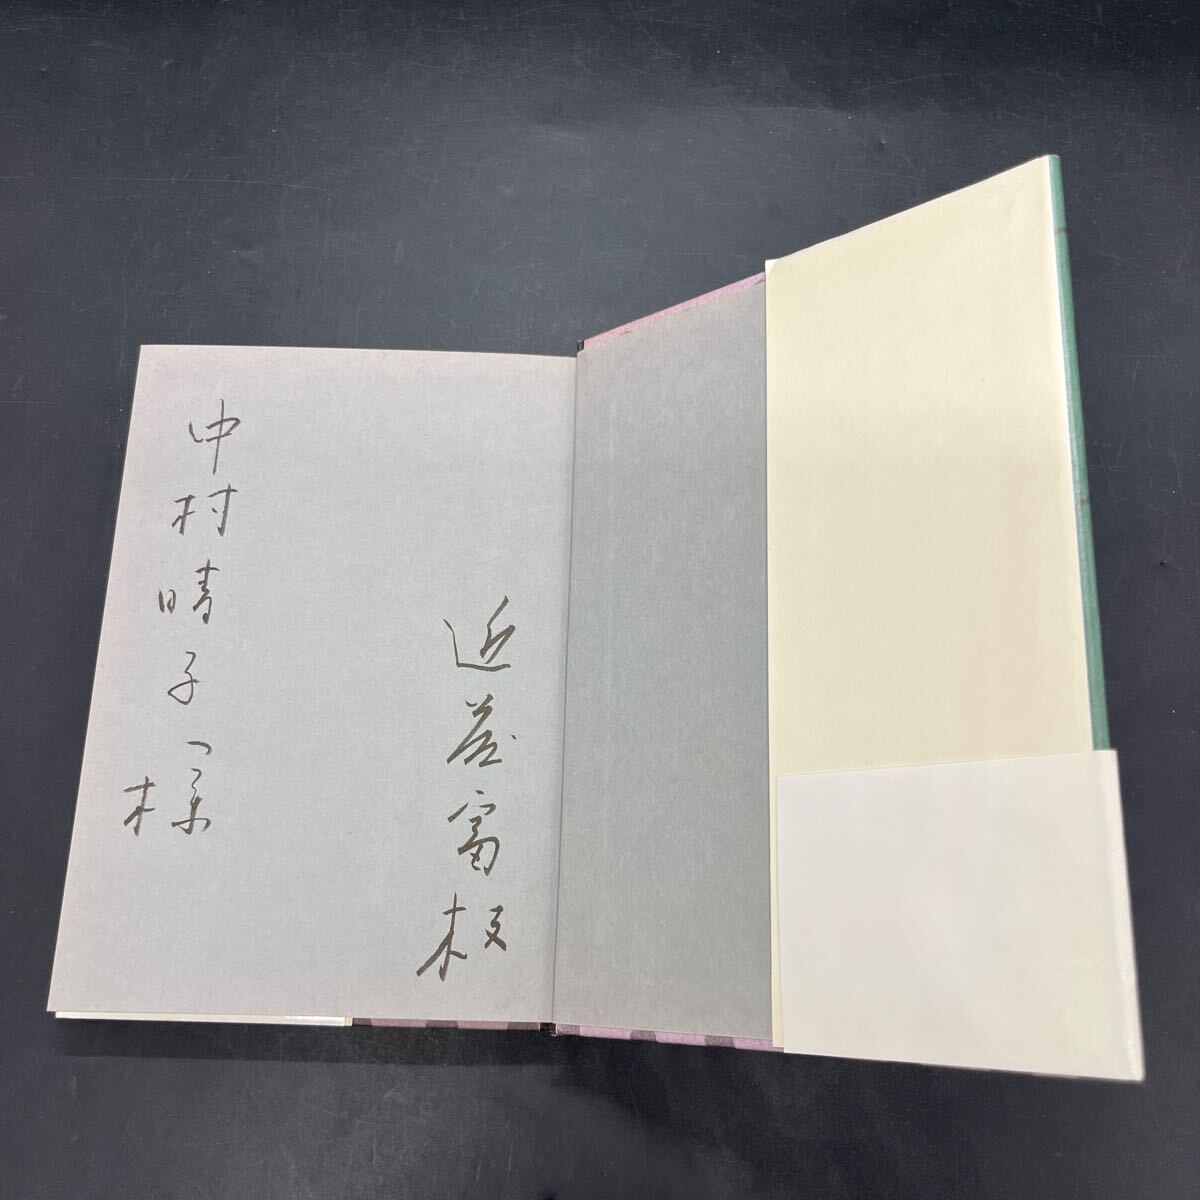 近藤富枝
中村晴子様